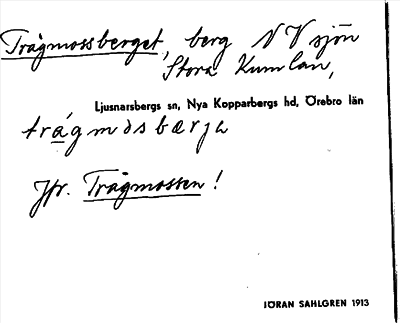 Trågmossberget, berg NV sjön
Stora Kumlan,
Ljusnarsbergs sn, Nya Kopparbergs hd, Örebro län
trågmosbærja
Jfr. Trågmossen!
JÖRAN SAHLGREN 1913